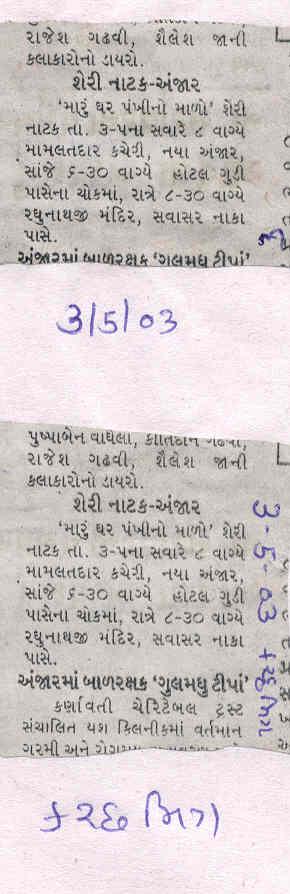 રાજેશ ગઢવી, શૈલેશ જાની
કલાકારોનો ડાયરો.
શેરી નાટક-અંજાર
'મારું ઘર પંખીનો માળો' શેરી
નાટક તા. ૩-૫ના સવારે ૮ વાગ્યે
મામલતદાર કચેરી, નયા અંજાર,
સાંજે ૬-૩૦ વાગ્યે હોટલ ગુડી
પાસેના ચોકમાં, રાત્રે ૮-૩૦ વાગ્યે
રઘુનાથજી મંદિર, સવાસર નાકા
પાસે.
અંજારમાં બાળરક્ષક 'ગુલમધુ ટીપાં'
3/5/03
પુષ્પાબેન વાઘેલા,
રાજેશ ગઢવી, શૈલેશ જાની
કલાકારોનો ડાયરો.
શેરી નાટક-અંજાર
'મારું ઘર પંખીનો માળો' શેરી
નાટક તા. ૩-૫ના સવારે ૮ વાગ્યે
મામલતદાર કચેરી, નયા અંજાર,
સાંજે ૬-૩૦ વાગ્યે હોટલ ગુડી
પાસેના ચોકમાં, રાત્રે ૮-૩૦ વાગ્યે
રઘુનાથજી મંદિર, સવાસર નાકા
પાસે.
અંજારમાં બાળરક્ષક 'ગુલમધુ ટીપાં'
કર્ણાવતી ચેરિટેબલ ટ્રસ્ટ
સંચાલિત યશ ક્લિનીકમાં વર્તમાન
ગરમી અને
3-5-03 કચ્છમિત્ર
કચ્છમિત્ર